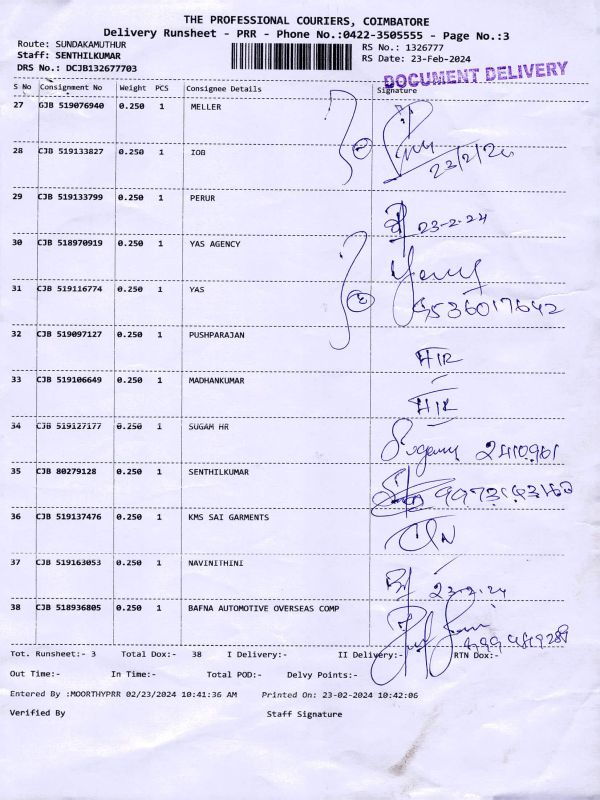 THE PROFESSIONAL COURIERS, COIMBATORE
Delivery Runsheet - PRR - Phone No.:0422-3505555 - Page No.:3
Route: SUNDAKAMUTHUR RS No.: 1326777
Staff: SENTHILKUMAR RS Date: 23-Feb-2024
DRS No.: DCJB132677703
DOCUMENT DELIVERY
S No Consignment No Weight PCS Consignee Details Signature
27 GJB 519076940 0.250 1 MELLER
28 CJB 519133827 0.250 1 IOB
23/2/24
29 CJB 519133799 0.250 1 PERUR
23-2-24
30 CJB 518970919 0.250 1 YAS AGENCY
31 CJB 519116774 0.250 1 YAS
9536017642
32 CJB 519097127 0.250 1 PUSHPARAJAN
HIR
33 CJB 519106649 0.250 1 MADHANKUMAR
HIR
34 CJB 519127177 0.250 1 SUGAM HR
2410961
35 CJB 80279128 0.250 1 SENTHILKUMAR
36 CJB 519137476 0.250 1 KMS SAI GARMENTS
37 CJB 519163053 0.250 1 NAVINITHINI
23-2-24
38 CJB 518936805 0.250 1 BAFNA AUTOMOTIVE OVERSEAS COMP
Tot. Runsheet:- 3 Total Dox:- 38 I Delivery:- II Delivery:- RTN Dox:-
Out Time:- In Time:- Total POD:- Delvy Points:-
Entered By :MOORTHYPRR 02/23/2024 10:41:36 AM Printed On: 23-02-2024 10:42:06
Verified By Staff Signature